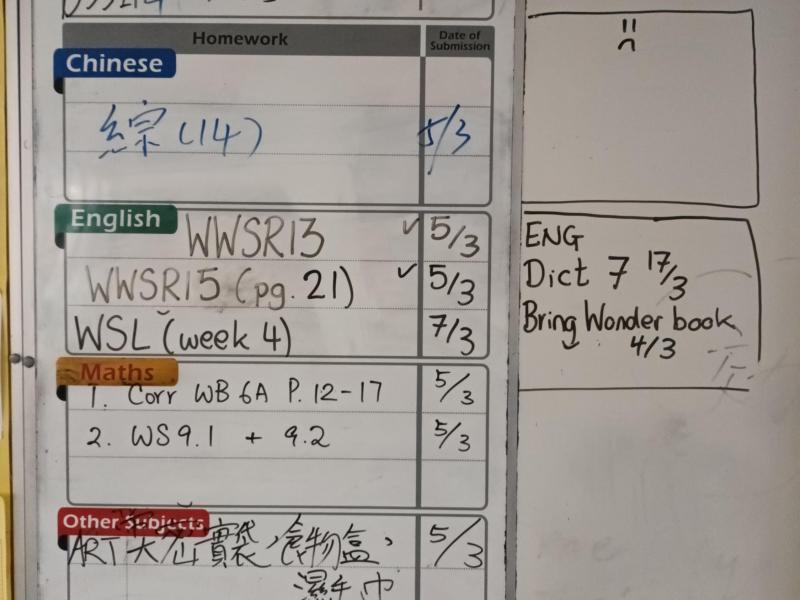 Homework
Date of
Submission
Chinese
綜(14) 5/3
English
WWSR13 ✓ 5/3
WWSR15 (pg. 21) ✓ 5/3
WSL (week 4) 7/3
Maths
1. Corr WB 6A P. 12-17 5/3
2. WS 9.1 + 9.2 5/3
Other Subjects
ART 實袋,食物盒, 5/3
濕手巾
ENG
Dict 7 17/3
Bring Wonder book
4/3